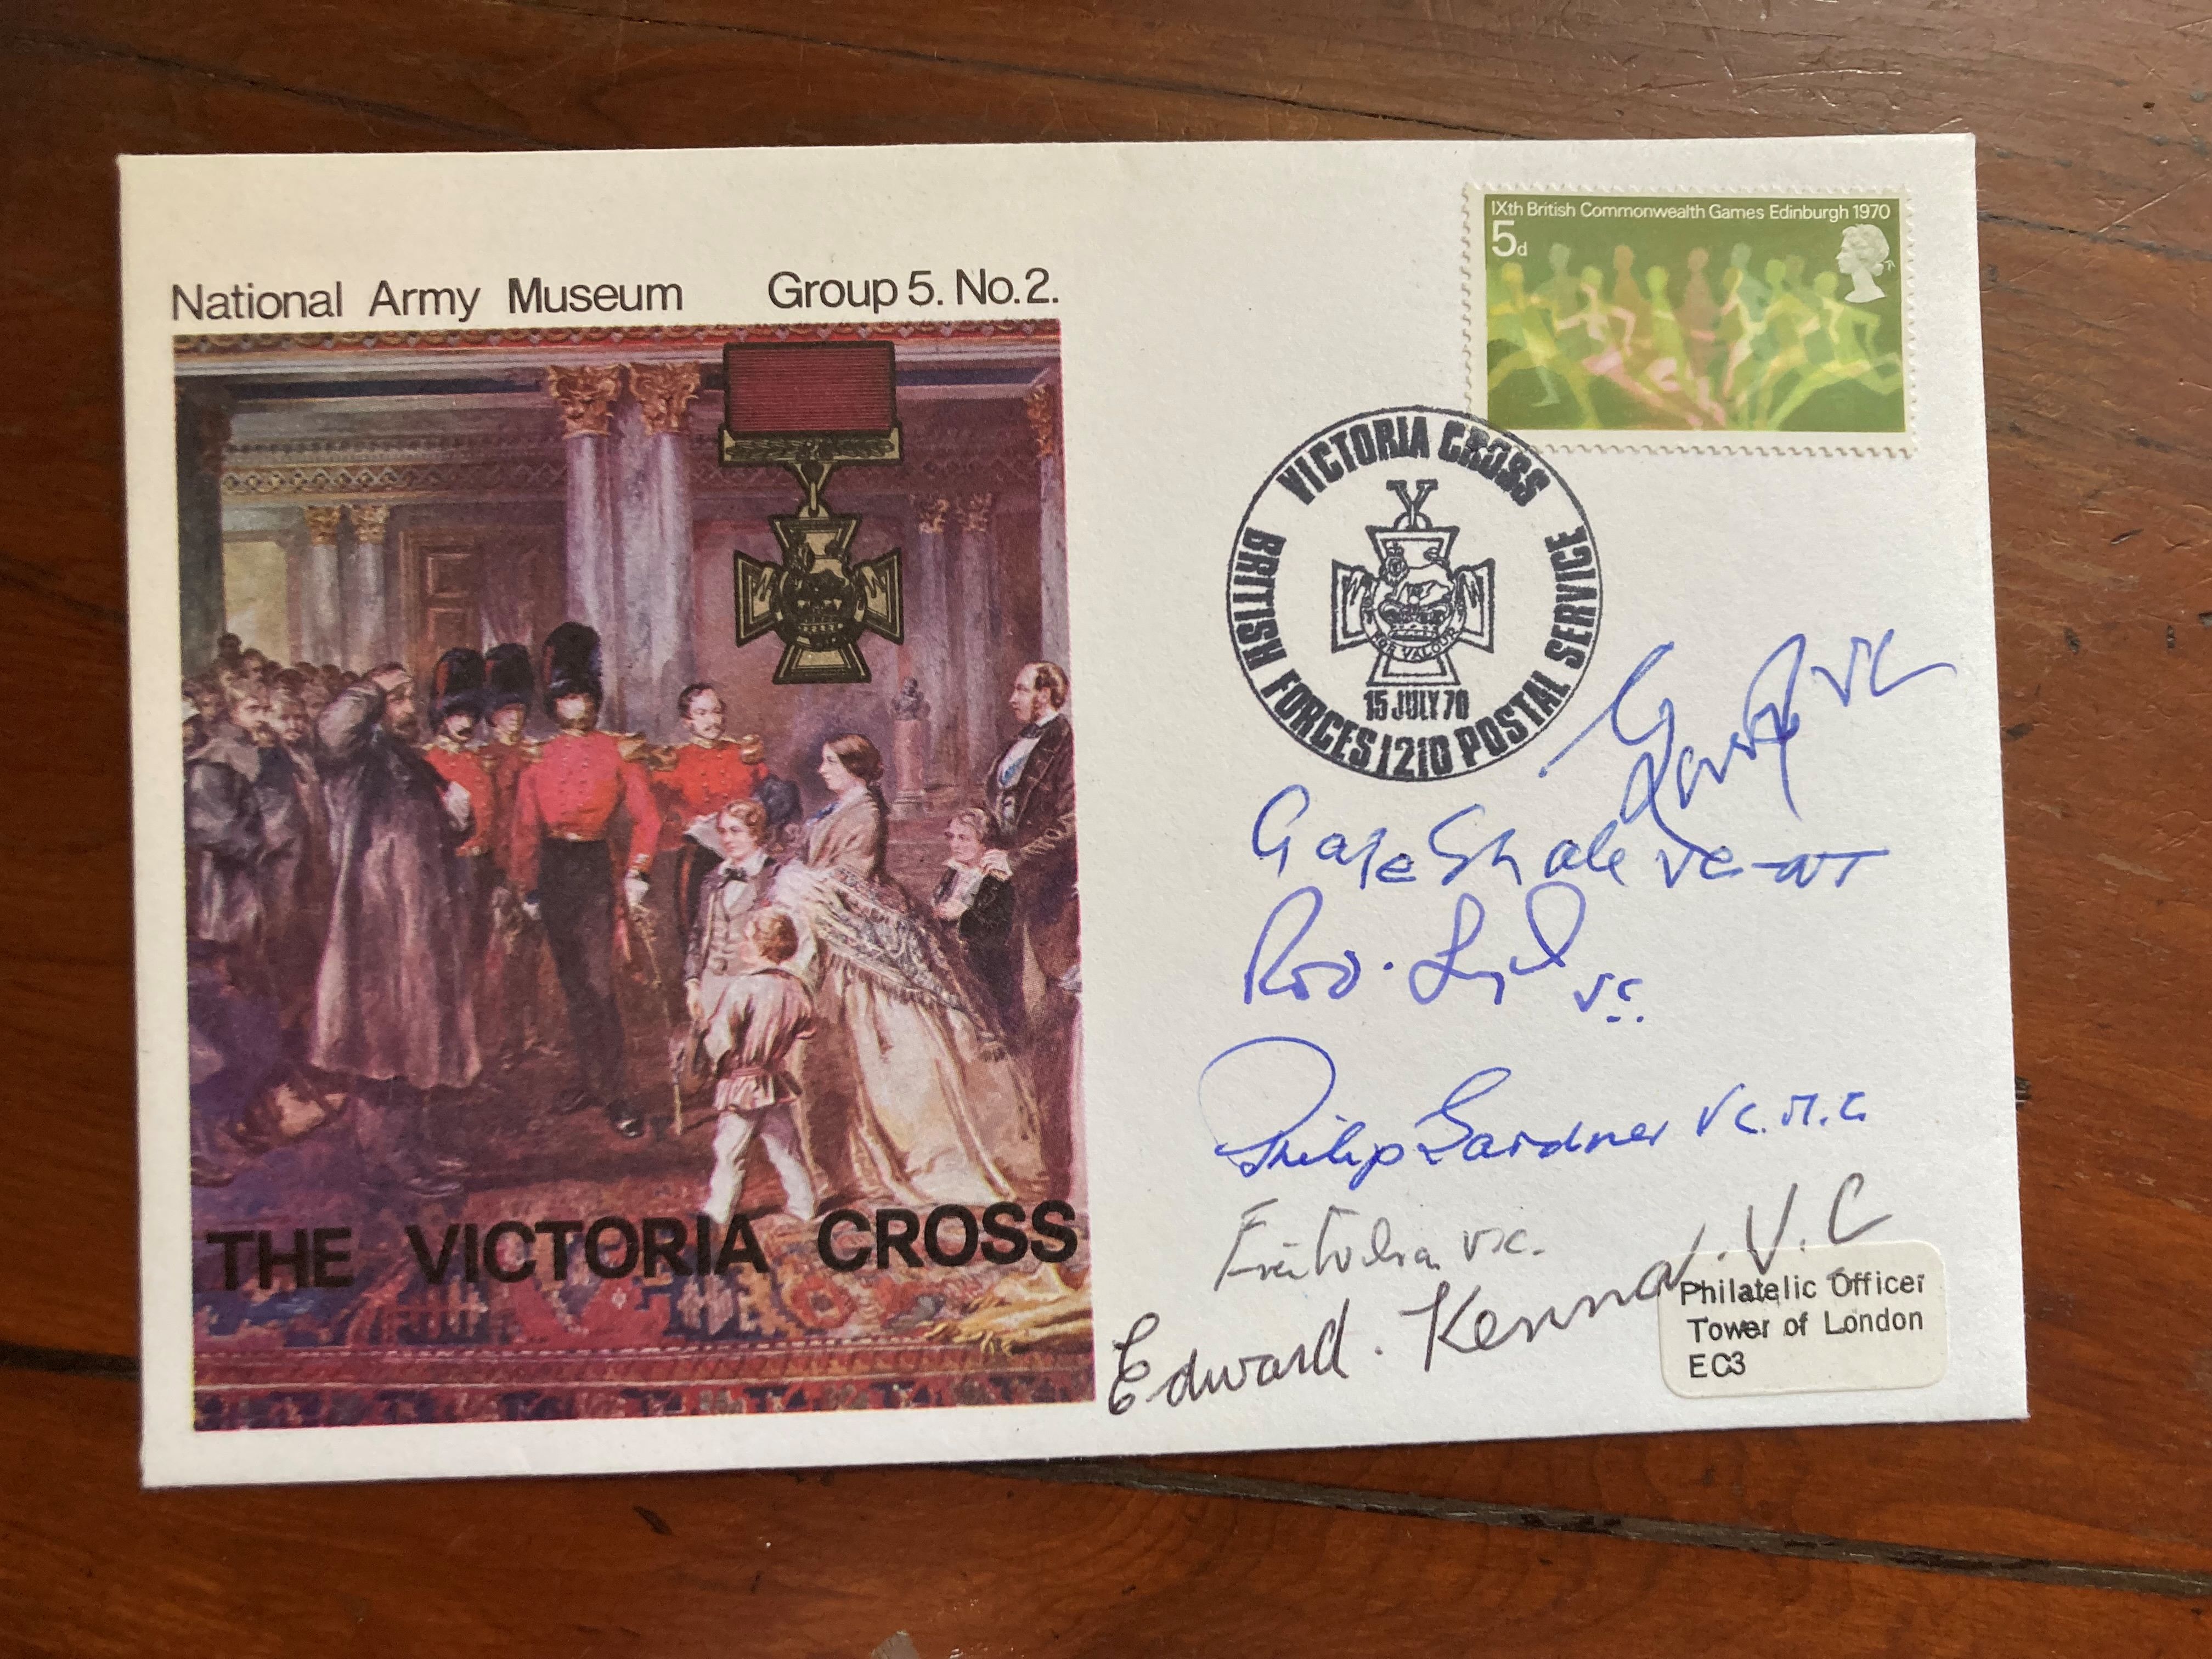 National Army Museum Group 5. No. 2.
THE VICTORIA CROSS
IXth British Commonwealth Games Edinburgh 1970
5d
VICTORIA CROSS
BRITISH FORCES 1210 POSTAL SERVICE
FOR VALOUR
15 JULY 70
VC
Gaje Ghale VC
Rod. VC.
Philip Gardner VC. M.C.
V.C.
Edward. Kenna. V.C
Philatelic Officer
Tower of London
EC3